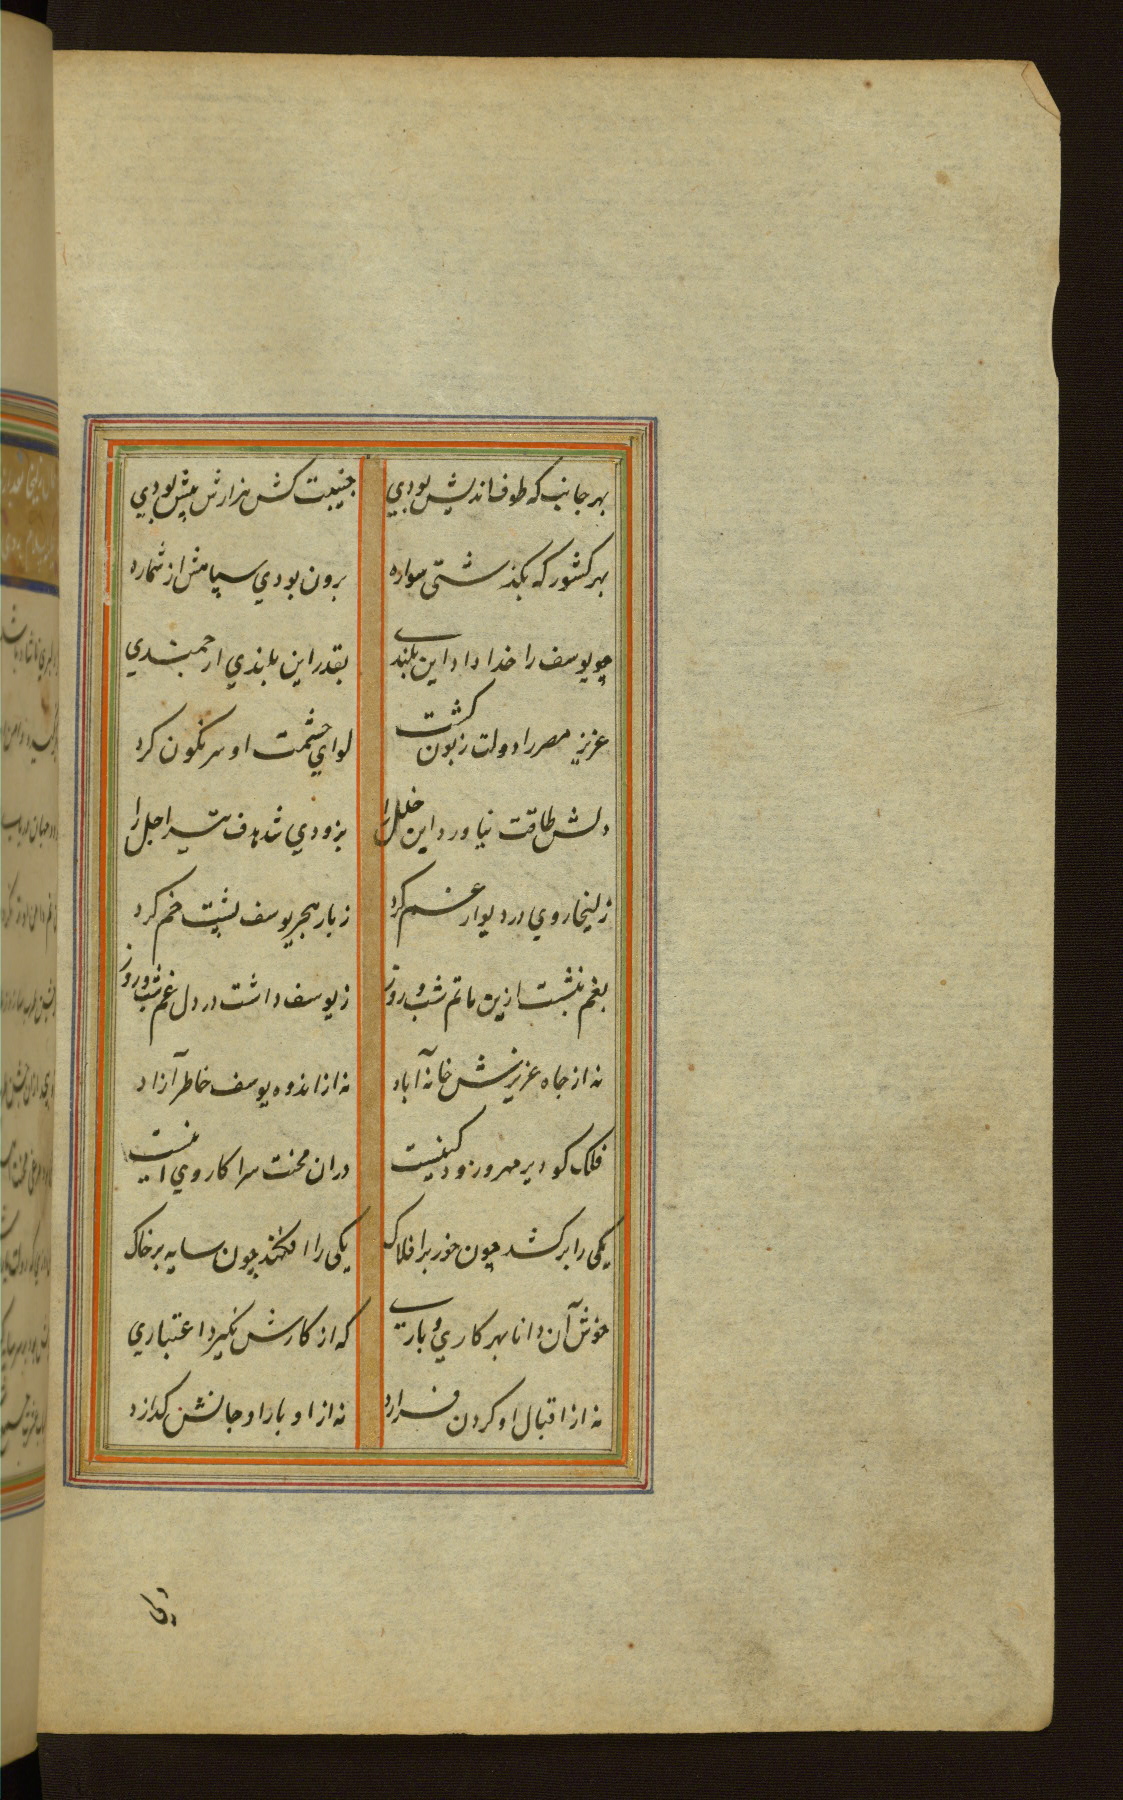 بهر جانب که طوف اندیش بودی جنیبت کش هزارش پیش بودی
بهر کشور که بگذشتی سواره برون بودی سپاهش از شماره
چو یوسف را خدا داد این بلندی بقدر این بلندی ارجمندی
عزیز مصر را دولت زبون کشت لوای حشمت او سرنکون کرد
دلش طاقت نیاورد این خلل را بزودی شد هدف تیر اجل را
زلیخا روی در دیوار غم کرد ز بار هجر یوسف پشت خم کرد
بغم بنشست ازین ماتم شب و روز ز یوسف داشت در دل غم شب و روز
نه از جاه عزیزش خانه آباد نه از اندوه یوسف خاطر آزاد
فلک کو دیر مهر و زود کینست دران محنت سرا کار وی اینست
یکی را برکشد چون خور بر افلاک یکی را افکند چون سایه بر خاک
خوش آن دانا بهر کاری و باری که از کارش نکیرد اعتباری
نه از اقبال او کردن فرازد نه از ادبار او جانش کدازد